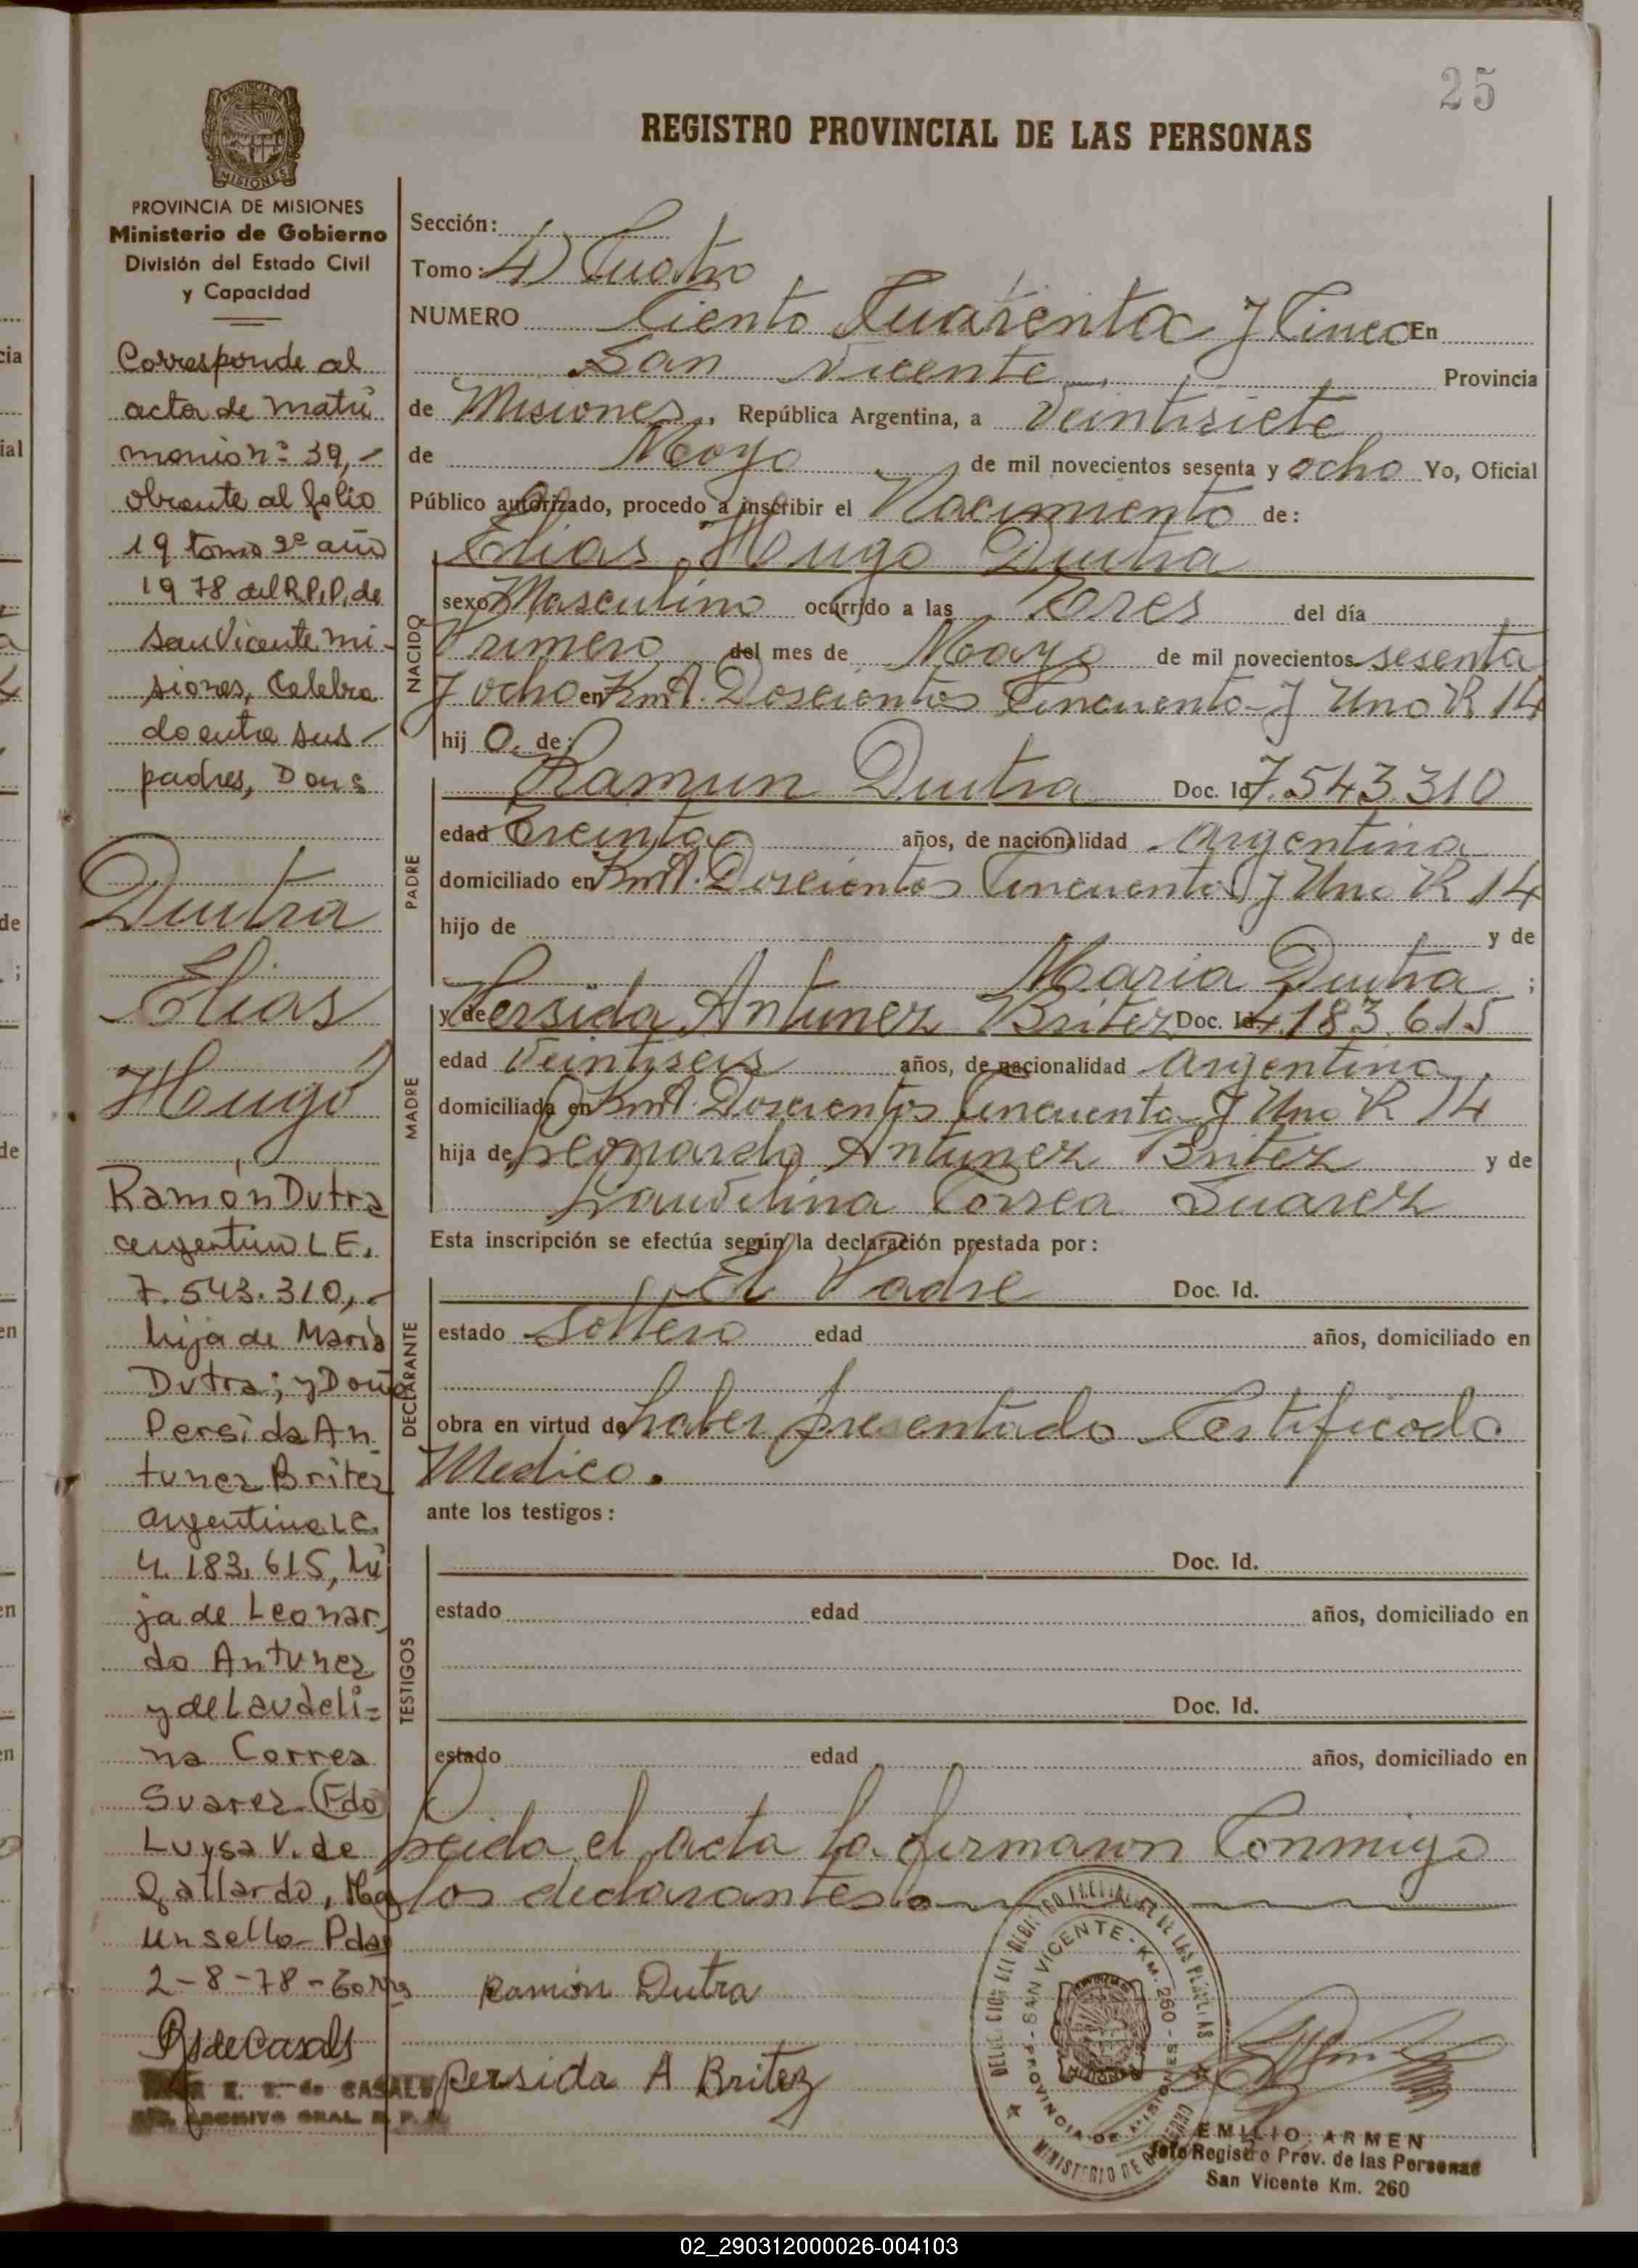 25
REGISTRO PROVINCIAL DE LAS PERSONAS
MISIONES
PROVINCIA DE MISIONES
Ministerio de Gobierno
División del Estado Civil
y Capacidad
Corresponde al
acta de matri
monio nº 39,-
obrante al folio
19 tomo 2º año
1978 del R.P.P. de
San Vicente mi-
siones, Celebra
do entre sus -
padres, Don:
Duitra
Elias
Hougo
Ramón Dutra
argentino L E.
7.543.310,-
hijo de María
Dutra; y Doña
Persida An
tunez Britez
argentina L C.
4.183.615, hi
ja de Leonar
do Antunez
y de Laudeli=
na Correa
Suarez (Fdo
Luysa V. de
Gallardo, Hay
un sello - Pdas
2-8-78-
RsdeCasals
CASALS
ARCHIVO GRAL. R. P. P.
Sección:
Tomo: 4) Cuatro
NUMERO Ciento Cuarenta y Cinco En
San Vicente Provincia
de Misiones, República Argentina, a Veintisiete
de Mayo de mil novecientos sesenta y ocho Yo, Oficial
Público autorizado, procedo a inscribir el Nacimiento de:
Elias Hougo Duitra
NACIDO
sexo Masculino ocurrido a las Tres del día
Primero del mes de Mayo de mil novecientos sesenta
y ocho en Kmt. Doscientos Cincuenta y Uno R 14
hij O. de:
PADRE
Ramun Duitra Doc. Id 7.543.310
edad Treinta años, de nacionalidad Argentina
domiciliado en Kmt. Doscientos Cincuenta y Uno R 14
hijo de y de
Maria Duitra ;
MADRE
y de Persida Antunez Britez Doc. Id. 4.183.615
edad Veintiseis años, de nacionalidad Argentina
domiciliada en Kmt. Doscientos Cincuenta y Uno R 14
hija de Leonardo Antunez Britez y de
Laudelina Correa Suarez
Esta inscripción se efectúa según la declaración prestada por:
DECLARANTE
El Padre Doc. Id.
estado Soltero edad años, domiciliado en
obra en virtud de haber presentado Certificado
Medico.
ante los testigos:
TESTIGOS
Doc. Id.
estado edad años, domiciliado en
Doc. Id.
estado edad años, domiciliado en
Leida el acta la firmaron Conmigo
los declarantes
Ramón Dutra
persida A Britez
SAN VICENTE - KM. 260 - PROVINCIA DE MISIONES
MINISTERIO DE GOBIERNO
EMILIO ARMEN
Jefe Registro Prov. de las Personas
San Vicente Km. 260
02_290312000026-004103